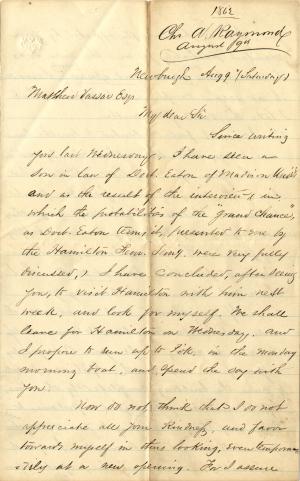 1862
Chs A. Raymond
August 9th
Newburgh Aug 9 / (Saturday)
Matthew Vassar Esq.
My dear Sir
Since writing
you last Wednesday, I have seen a
son in law of Doct. Eaton of Madison Univ.
and as the result of the interview, in
which the probabilities of the "grand Chance",
as Doct. Eaton terms it, presented to me by
the Hamilton Fem. Sem'y. were very fully
discussed, I have concluded, after seeing
you, to visit Hamilton with him next
week, and look for myself. We shall
leave for Hamilton on Wednesday, and
I propose to run up to Pok. in the monday
morning boat, and spend the day with
you.
Now do not think that I do not
appreciate all your kindness, and favor
towards myself in thus looking, even tempora-
rily at a new opening. For I assure